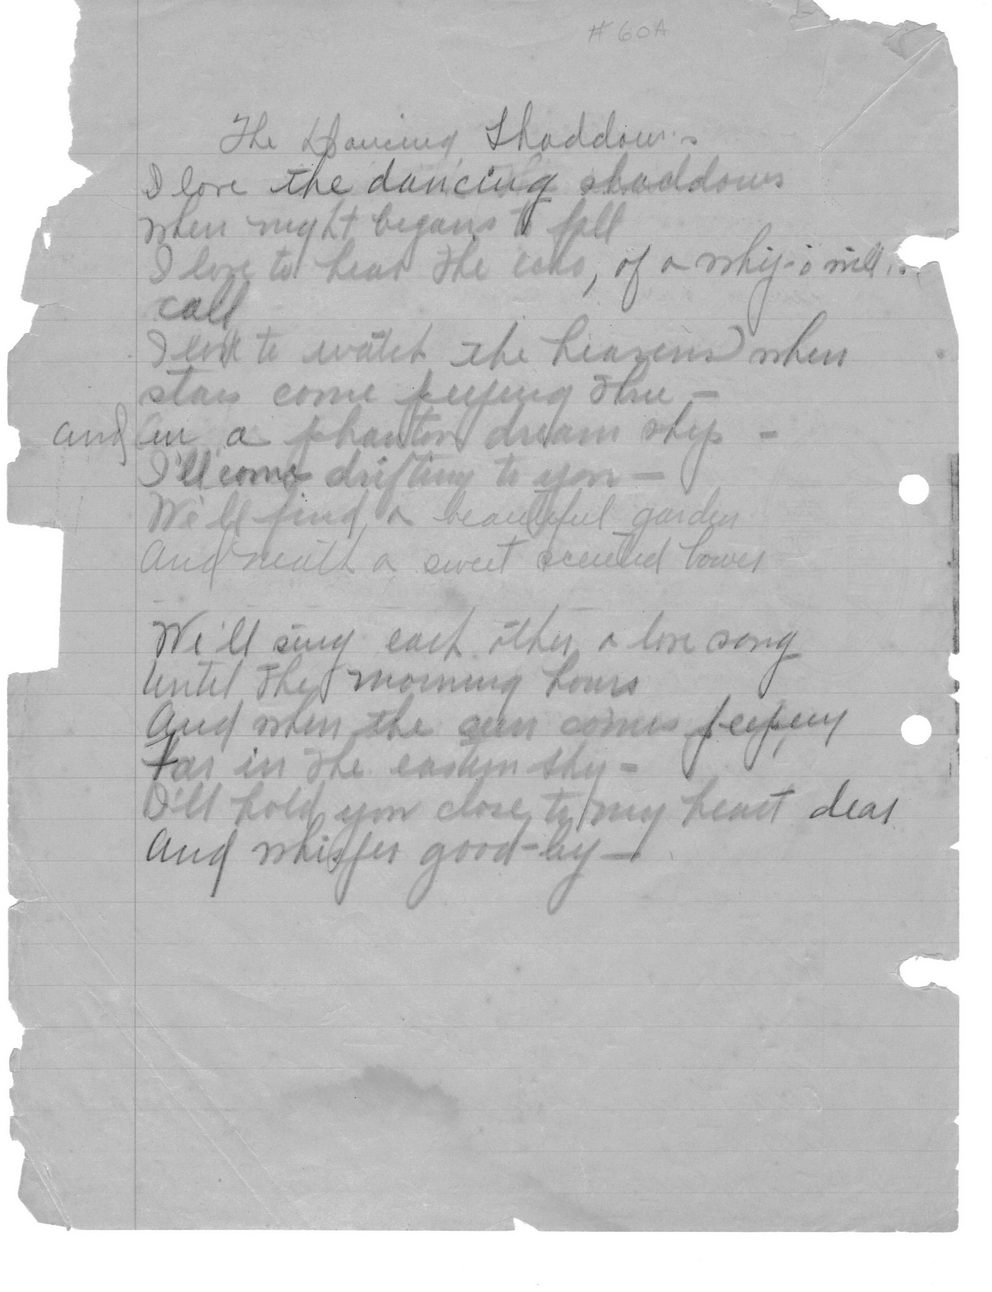 # 60A
The Dancing Shaddows
I love the dancing shaddows
when night begans to fall
I love to hear the echo, of a whip-o-will
call
I love to watch the heavens when
stars come peeping thru -
and in a phantom dream ship -
I'll come drifting to you -
We'll find a beautiful garden
And neath a sweet scented bower
We'll sing each other a love song
Until the morning hours
And when the sun comes peeping
Far in the eastern sky -
I'll hold you close to my heart dear
And whisper good-by -